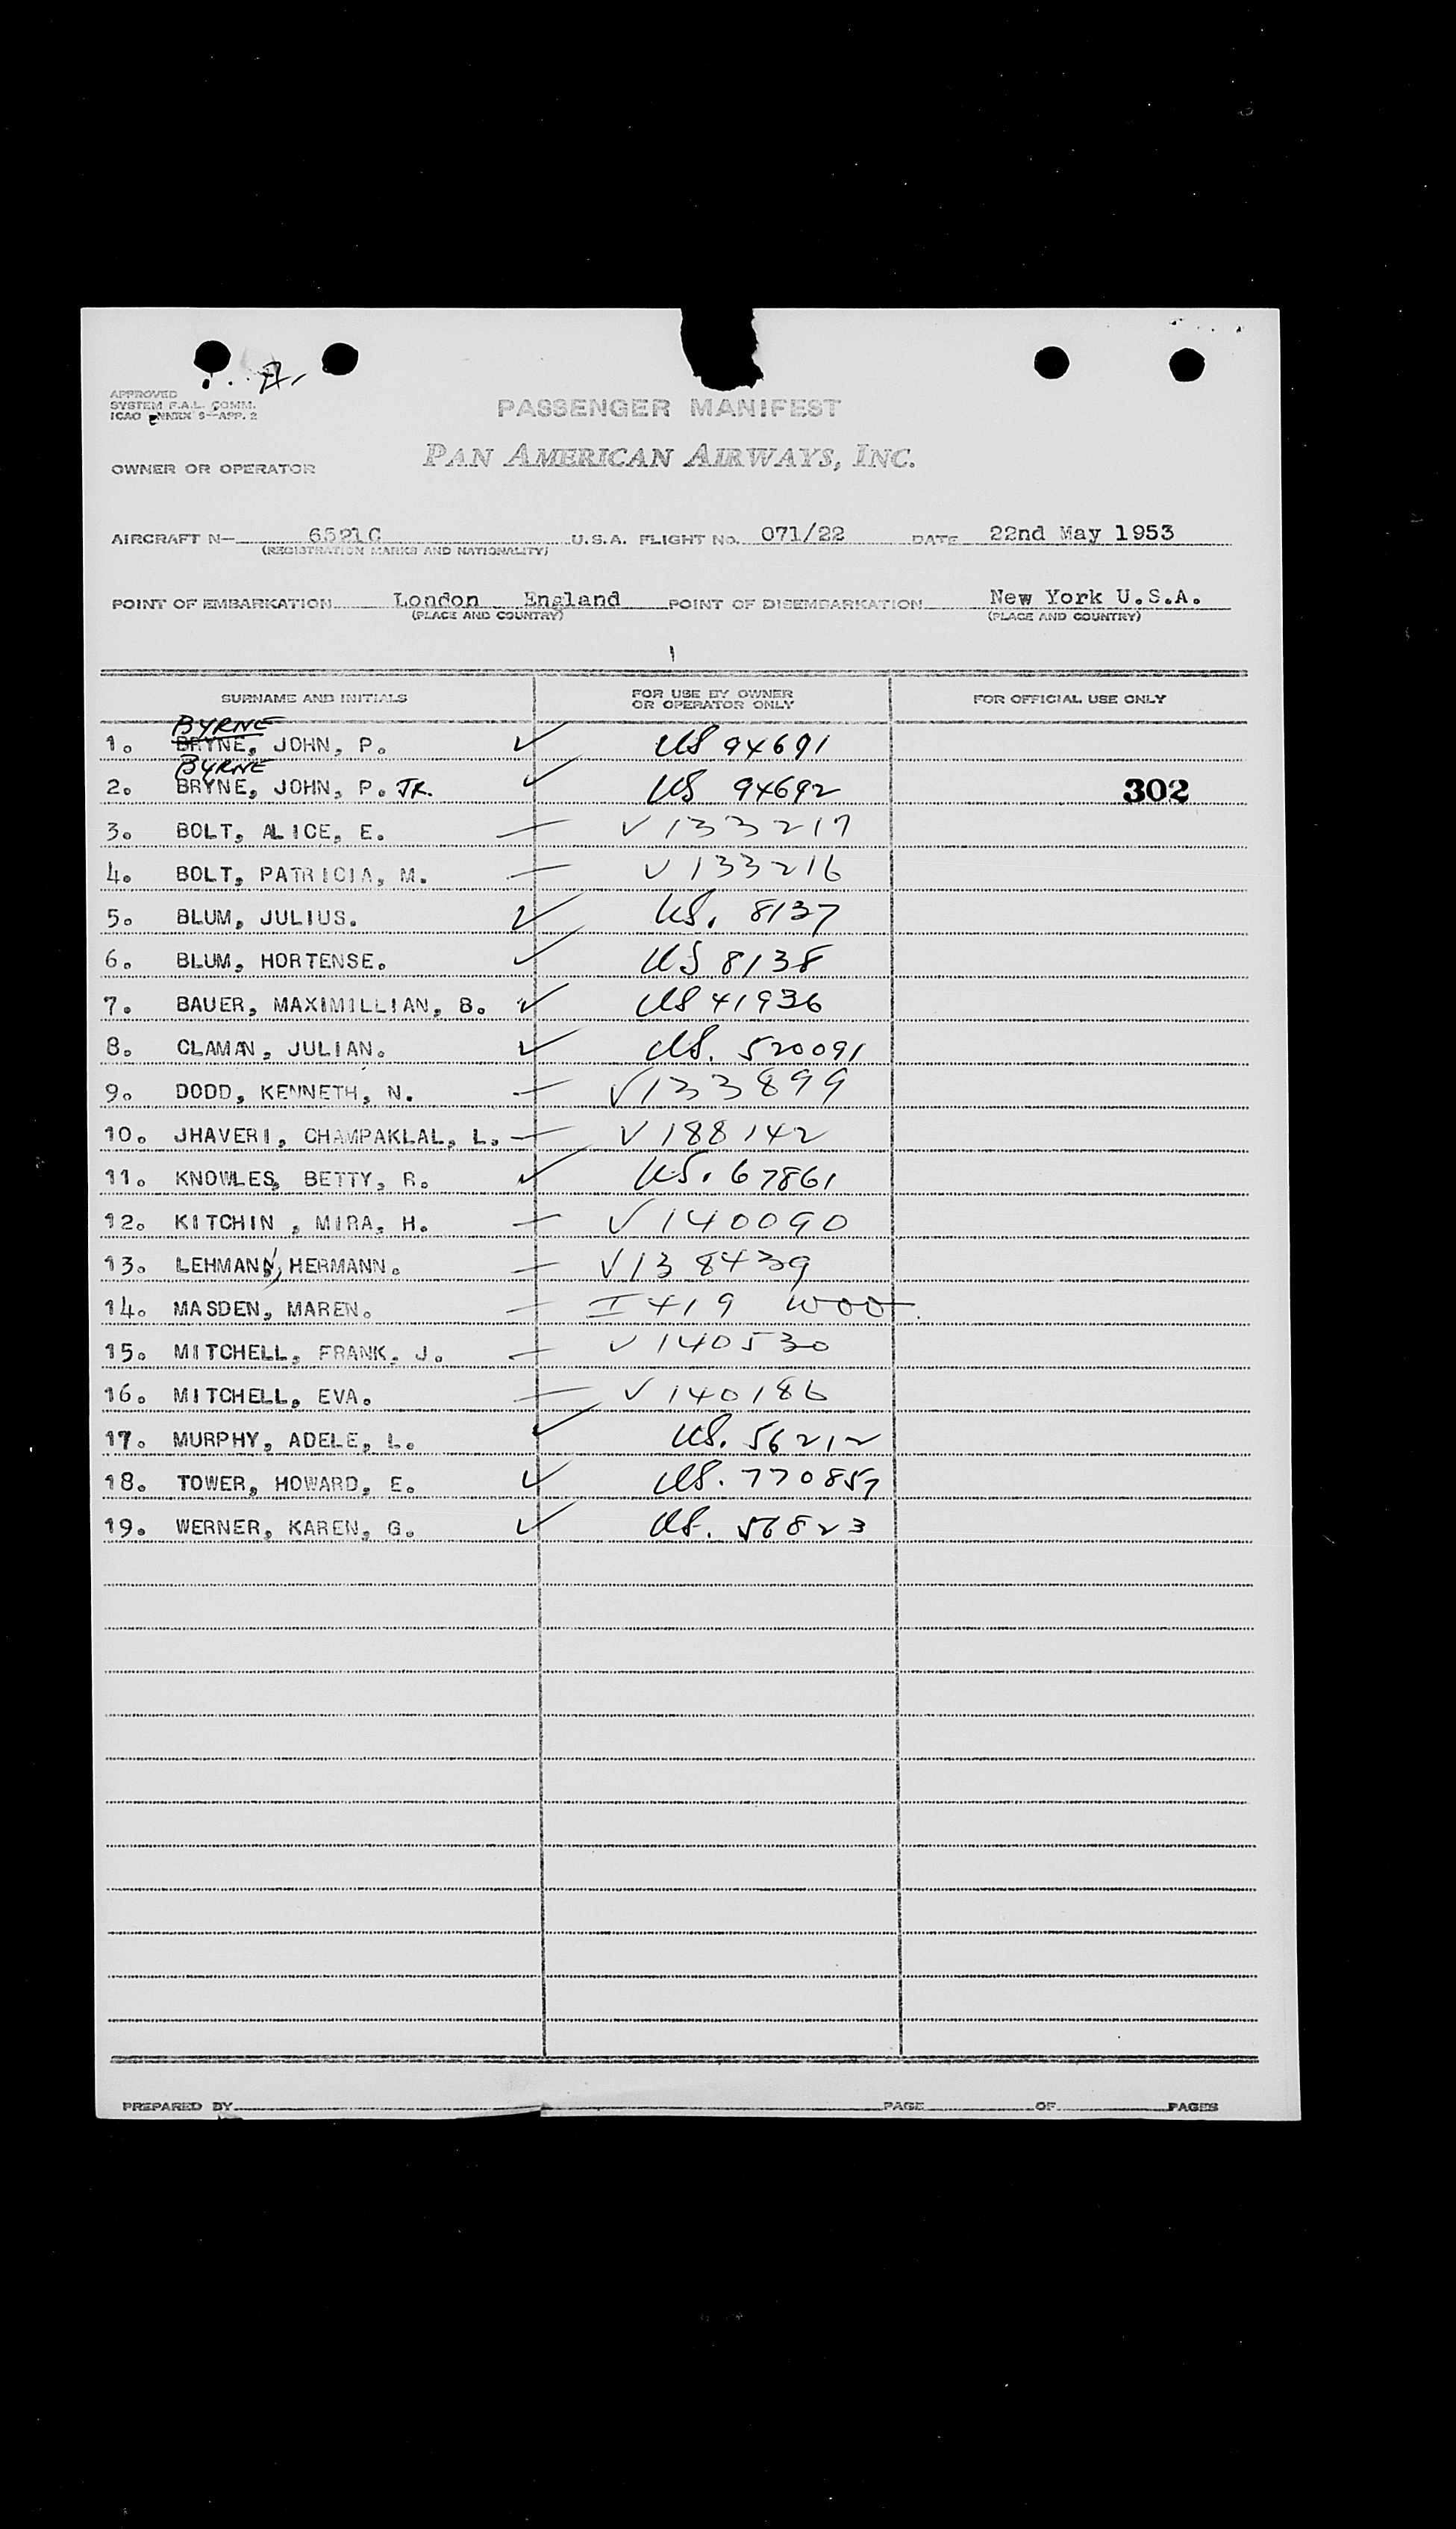 APPROVED
SYSTEM F.A.L. COMM.
ICAO ANNEX 9-APP. 2
PASSENGER MANIFEST
OWNER OR OPERATOR PAN AMERICAN AIRWAYS, INC.
AIRCRAFT N- 6521C U.S.A. FLIGHT No. 071/22 DATE 22nd May 1953
(REGISTRATION MARKS AND NATIONALITY)
POINT OF EMBARKATION London England POINT OF DISEMBARKATION New York U.S.A.
(PLACE AND COUNTRY) (PLACE AND COUNTRY)
SURNAME AND INITIALS FOR USE BY OWNER OR OPERATOR ONLY FOR OFFICIAL USE ONLY
BYRNE
1. BRYNE, JOHN, P. ✓ US 94691
BYRNE
2. BRYNE, JOHN, P. JR. ✓ US 94692 302
3. BOLT, ALICE, E. — V 133217
4. BOLT, PATRICIA, M. — V 133216
5. BLUM, JULIUS. ✓ US. 8137
6. BLUM, HORTENSE. ✓ US 8138
7. BAUER, MAXIMILLIAN, B. ✓ US 41936
8. CLAMAN, JULIAN. ✓ US. 520091
9. DODD, KENNETH, N. — V 133899
10. JHAVERI, CHAMPAKLAL, L. — V 188142
11. KNOWLES, BETTY, R. ✓ US. 67861
12. KITCHIN , MIRA, H. — V 140090
13. LEHMANN, HERMANN. — V 138439
14. MASDEN, MAREN. — I 419
15. MITCHELL, FRANK, J. — V 140530
16. MITCHELL, EVA. — V 140186
17. MURPHY, ADELE, L. ✓ US. 56212
18. TOWER, HOWARD, E. ✓ US. 770857
19. WERNER, KAREN, G. ✓ US. 56823
PREPARED BY PAGE OF PAGES